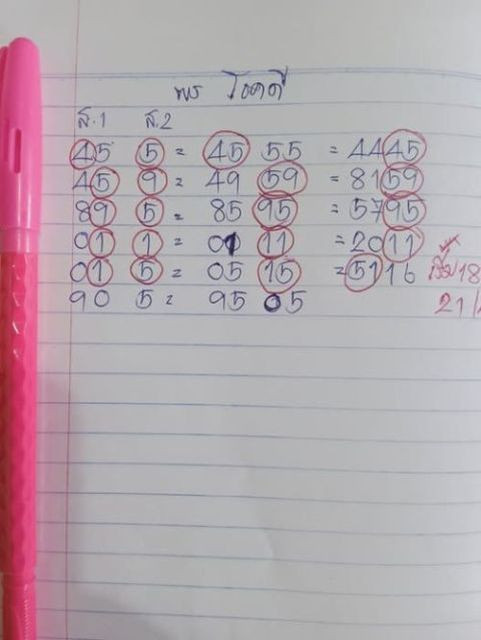 พร โชคดี
ส.1 ส.2
45 5 = 45 55 = 4445
45 9 = 49 59 = 8159
89 5 = 85 95 = 5795
01 1 = 01 11 = 2011
01 5 = 05 15 = 5116
90 5 = 95 05